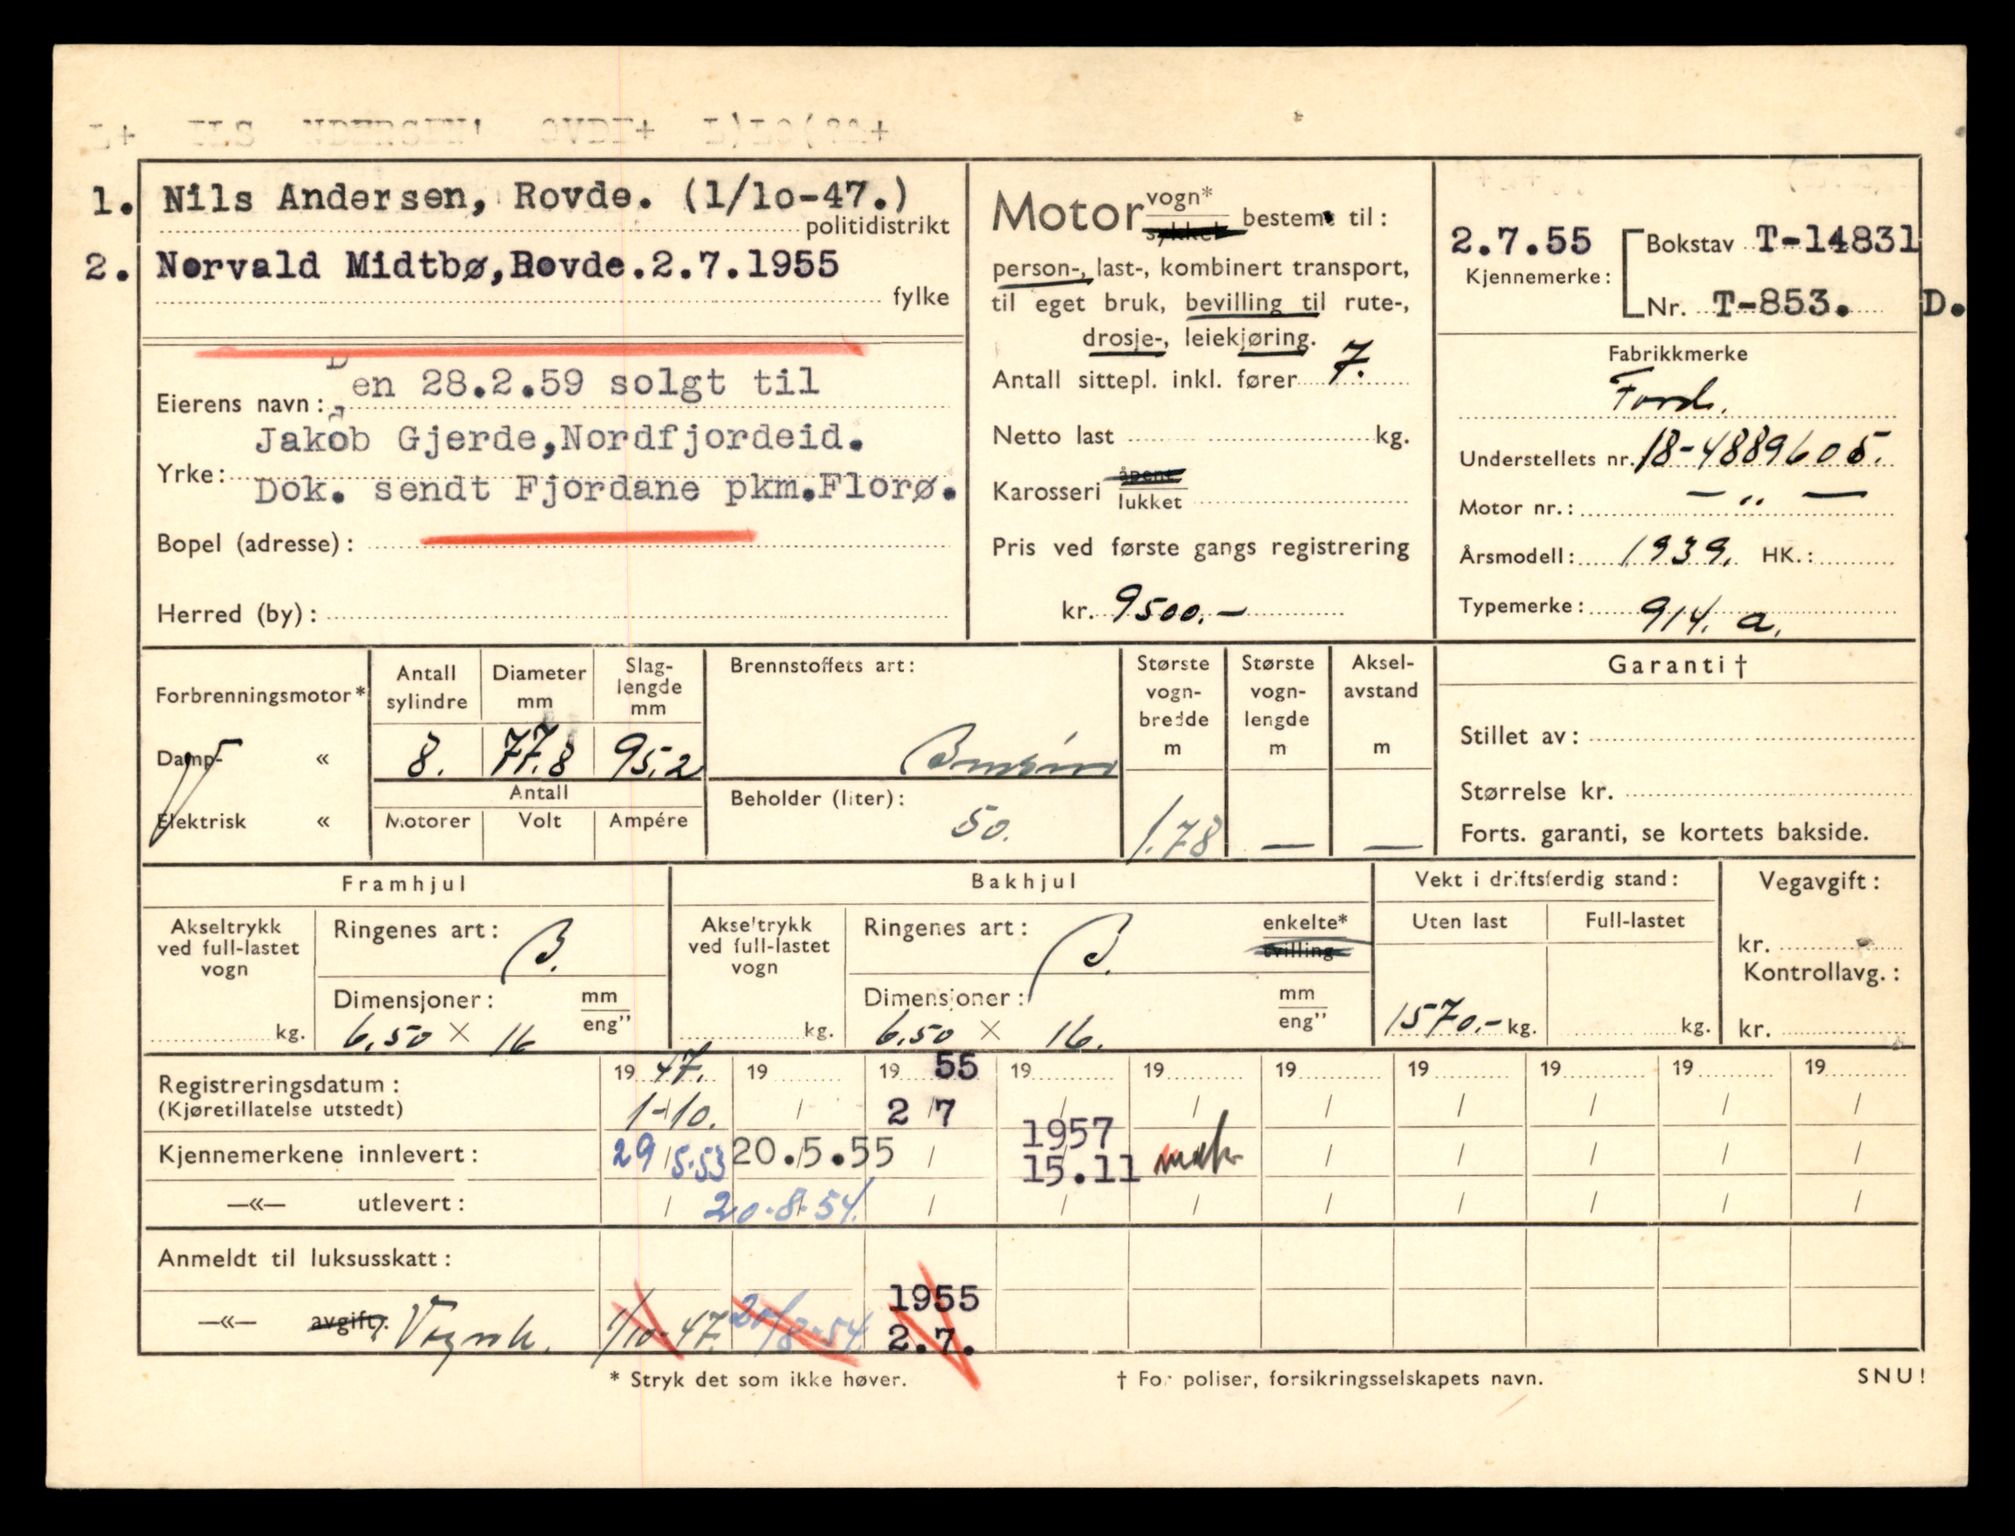 1. Nils Andersen, Rovde. (1/10-47.)
politidistrikt
2. Norvald Midtbø, Rovde.2.7.1955
fylke
Den 28.2.59 solgt til
Eierens navn:
Jakob Gjerde, Nordfjordeid.
Yrke:
Dok. sendt Fjordane pkm. Florø.
Bopel (adresse):
Herred (by):
Motor vogn* sykkel bestemt til:
person-, last-, kombinert transport,
til eget bruk, bevilling til rute-,
drosje-, leiekjøring.
Antall sittepl. inkl. fører 7.
Netto last kg.
Karosseri åpent lukket
Pris ved første gangs registrering
kr. 9500.-
2.7.55 Bokstav T-14831
Kjennemerke:
Nr. T-853. D.
Fabrikkmerke
Ford.
Understellets nr. 18-4889605.
Motor nr.: — „ —
Årsmodell: 1939. HK.:
Typemerke: 914. a.
Forbrenningsmotor*
Damp- «
Elektrisk «
Antall sylindre Diameter mm Slag-lengde mm
8. 77.8 95.2
Antall
Motorer Volt Ampére
Brennstoffets art:
Bensin
Beholder (liter):
50.
Største vogn-bredde m Største vogn-lengde m Aksel-avstand m
1.78 — —
Garanti †
Stillet av:
Størrelse kr.
Forts. garanti, se kortets bakside.
Framhjul
Akseltrykk ved full-lastet vogn
kg.
Ringenes art: B.
Dimensjoner: mm eng"
6.50 × 16
Bakhjul
Akseltrykk ved full-lastet vogn
kg.
Ringenes art: B. enkelte* tvilling
Dimensjoner: mm eng"
6.50 × 16.
Vekt i driftsferdig stand:
Uten last Full-lastet
1570.- kg. kg.
Vegavgift:
kr.
Kontrollavg.:
kr.
19 47. 19 19 55 19 19 19 19 19 19 19
Registreringsdatum:
(Kjøretillatelse utstedt) 1-10. / 2/7 / / / / / / /
Kjennemerkene innlevert: 29/5-53 20.5.55 / 1957 15.11 / / / / /
—«— utlevert: / 20-8-54. / / / / / / / /
Anmeldt til luksusskatt:
—«— avgift: 1/10-47. 20/8-54. 1955 2.7.
* Stryk det som ikke høver.
† For poliser, forsikringsselskapets navn.
SNU!